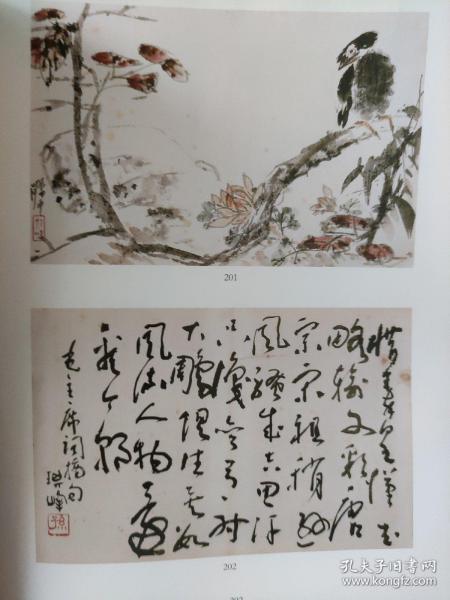 201
惜秦皇漢武
略輸文彩唐
宗宋祖稍逊
風騷成吉思汗
只識弯弓射
大雕俱往矣数
風流人物还
看今朝
毛主席詞摘句
琪峰
孫
202
孔夫子旧书网
www.kongfz.com